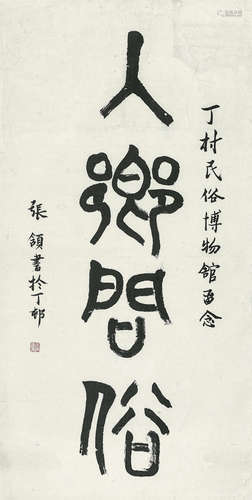 丁村民俗博物館留念
入鄉問俗
張頷書於丁邨